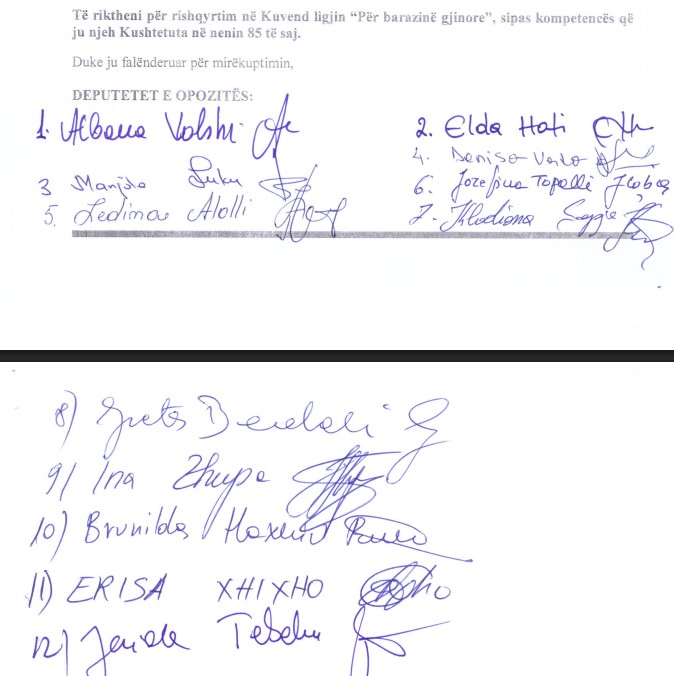 Të riktheni për rishqyrtim në Kuvend ligjin “Për barazinë gjinore”, sipas kompetencës që
ju njeh Kushtetuta në nenin 85 të saj.
Duke ju falënderuar për mirëkuptimin,
DEPUTETET E OPOZITËS:
1. Albana Vokshi
2. Elda Hoti
3 Manjola Luku
4. Denisa Vata
5. Ledina Alolli
6. Jozefina Topalli
7. Klodiana
8) Greta Bardeli
9) Ina Zhupa
10) Brunilda Haxhiu
11) ERISA XHIXHO
12) Jonida